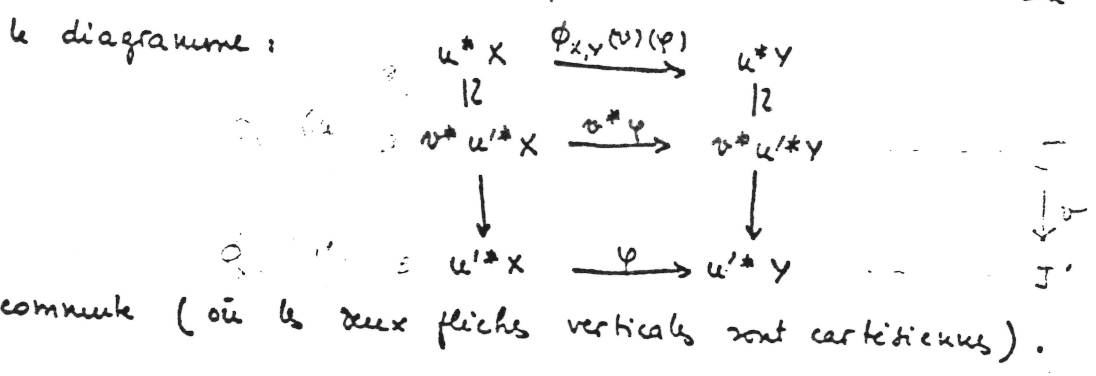 le diagramme :
u* X ϕ_{X,Y}(v)(φ) u* Y
v* u'* X v* φ v* u'* Y
v
u'* X φ u'* Y J'
commute (où les deux flèches verticales sont cartésiennes).